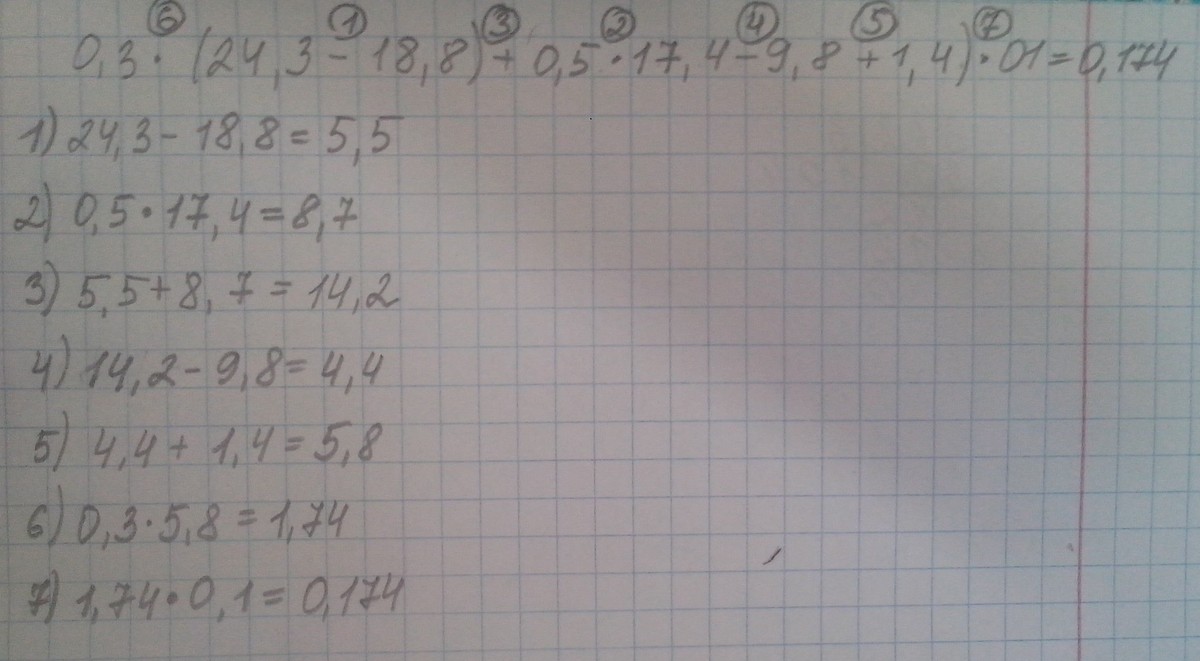 ⑥ ① ③ ② ④ ⑤ ⑦
0,3·(24,3-18,8)+0,5·17,4-9,8+1,4)·01=0,174
1) 24,3-18,8=5,5
2) 0,5·17,4=8,7
3) 5,5+8,7=14,2
4) 14,2-9,8=4,4
5) 4,4+1,4=5,8
6) 0,3·5,8=1,74
7) 1,74·0,1=0,174